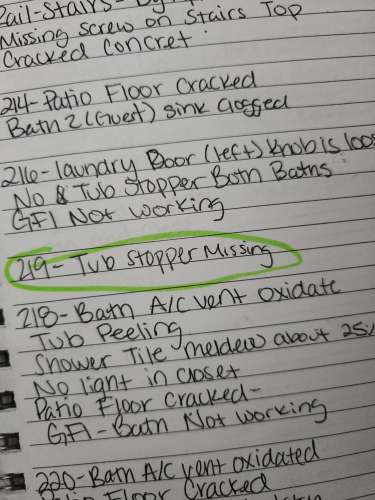 Rail-Stairs-
Missing Screw on Stairs Top
Cracked Concret.
214-Patio Floor Cracked
Bath 2 (Guest) sink clogged
216-laundry Door (left) Knob is loos
No & Tub Stopper Both Baths.
GFI Not working
219-Tub Stopper Missing
218-Bath A/C vent oxidate
Tub Peeling
Shower Tile meldew about 25%
No light in closet
Patio Floor Cracked-
GFI-Bath Not working
220-Bath A/C vent oxidated
Patio Floor Cracked